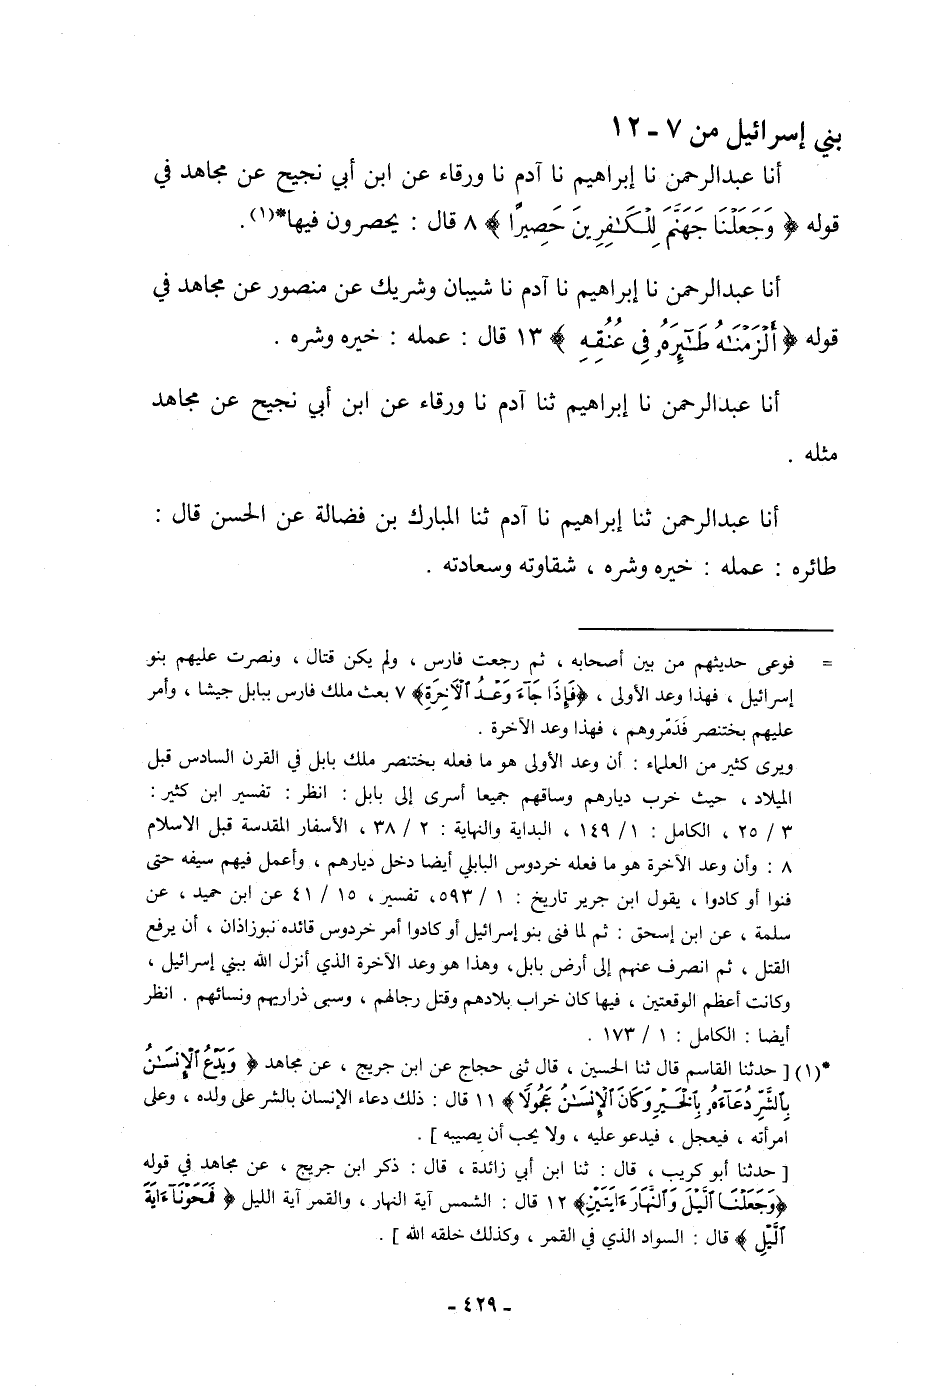 بني إسرائيل من ٧ - ١٢
أنا عبدالرحمن نا إبراهيم نا آدم نا ورقاء عن ابن أبي نجيح عن مجاهد في
قوله ﴿ وَجَعَلْنَا جَهَنَّمَ لِلْكَٰفِرِينَ حَصِيرًا ﴾ ٨ قال : يحصرون فيها*(١).
أنا عبدالرحمن نا إبراهيم نا آدم نا شيبان وشريك عن منصور عن مجاهد في
قوله ﴿ أَلْزَمْنَٰهُ طَٰٓئِرَهُۥ فِى عُنُقِهِۦ ﴾ ١٣ قال : عمله : خيره وشره .
أنا عبدالرحمن نا إبراهيم ثنا آدم نا ورقاء عن ابن أبي نجيح عن مجاهد
مثله .
أنا عبدالرحمن ثنا إبراهيم نا آدم ثنا المبارك بن فضالة عن الحسن قال :
طائره : عمله : خيره وشره ، شقاوته وسعادته .
= فوعى حديثهم من بين أصحابه ، ثم رجعت فارس ، ولم يكن قتال ، ونصرت عليهم بنو
إسرائيل ، فهذا وعد الأولى ، ﴿فَإِذَا جَآءَ وَعْدُ ٱلْءَاخِرَةِ﴾ ٧ بعث ملك فارس ببابل جيشا ، وأمر
عليهم بختنصر فَدَمّروهم ، فهذا وعد الآخرة .
ويرى كثير من العلماء : أن وعد الأولى هو ما فعله بختنصر ملك بابل في القرن السادس قبل
الميلاد ، حيث خرب ديارهم وساقهم جميعا أسرى إلى بابل : انظر : تفسير ابن كثير :
٣ / ٢٥ ، الكامل : ١ / ١٤٩ ، البداية والنهاية : ٢ / ٣٨ ، الأسفار المقدسة قبل الاسلام
٨ : وأن وعد الآخرة هو ما فعله خردوس البابلي أيضا دخل ديارهم ، وأعمل فيهم سيفه حتى
فنوا أو كادوا ، يقول ابن جرير تاريخ : ١ / ٥٩٣، تفسير ، ١٥ / ٤١ عن ابن حميد ، عن
سلمة ، عن ابن إسحق : ثم لما فنى بنو إسرائيل أو كادوا أمر خردوس قائده نبوزاذان ، أن يرفع
القتل ، ثم انصرف عنهم إلى أرض بابل، وهذا هو وعد الآخرة الذي أنزل الله ببني إسرائيل ،
وكانت أعظم الوقعتين ، فيها كان خراب بلادهم وقتل رجالهم ، وسبى ذراريهم ونسائهم . انظر
أيضا : الكامل : ١ / ١٧٣ .
*(١) [ حدثنا القاسم قال ثنا الحسين ، قال ثنى حجاج عن ابن جريج ، عن مجاهد ﴿ وَيَدْعُ ٱلْإِنسَٰنُ
بِٱلشَّرِّ دُعَآءَهُۥ بِٱلْخَيْرِ وَكَانَ ٱلْإِنسَٰنُ عَجُولًا ﴾ ١١ قال : ذلك دعاء الإنسان بالشر على ولده ، وعلى
امرأته ، فيعجل ، فيدعو عليه ، ولا يحب أن يصيبه ] .
[ حدثنا أبو كريب ، قال : ثنا ابن أبي زائدة ، قال : ذكر ابن جريج ، عن مجاهد في قوله
﴿وَجَعَلْنَا ٱلَّيْلَ وَٱلنَّهَارَ ءَايَتَيْنِ﴾ ١٢ قال : الشمس آية النهار ، والقمر آية الليل ﴿ فَمَحَوْنَآ ءَايَةَ
ٱلَّيْلِ ﴾ قال : السواد الذي في القمر ، وكذلك خلقه الله ] .
- ٤٢٩ -